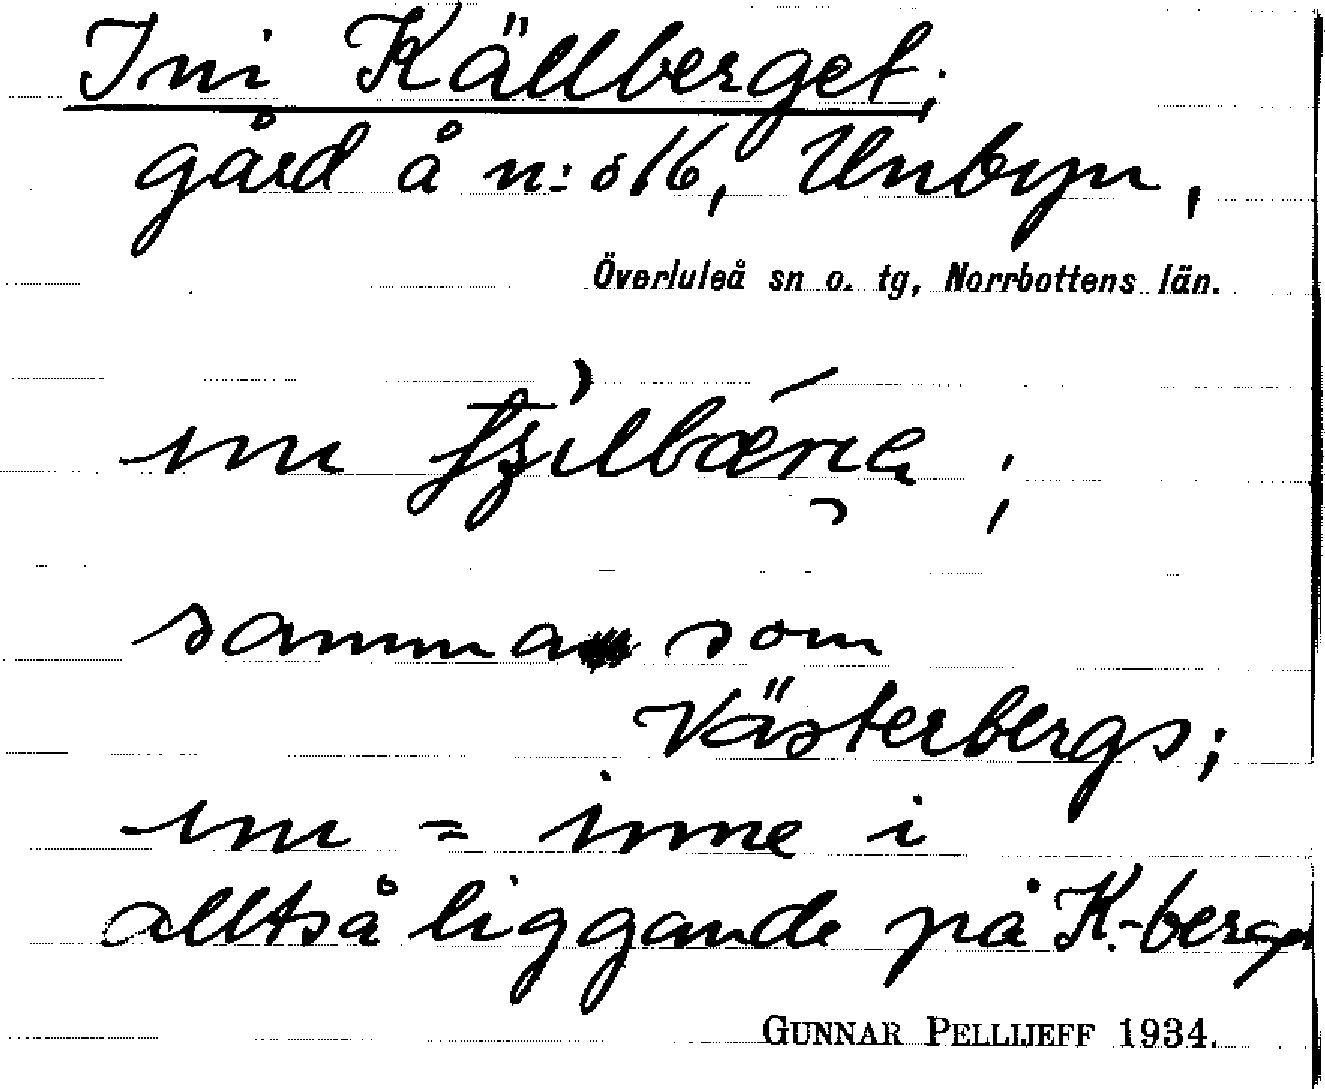 Ini Källberget;
gård å n:o 16, Unbyn,
Överluleå sn o. tg, Norrbottens län.
samma som
Västerbergs;
= inne i
alltså liggande på K.-berget
GUNNAR PELLIJEFF 1934.